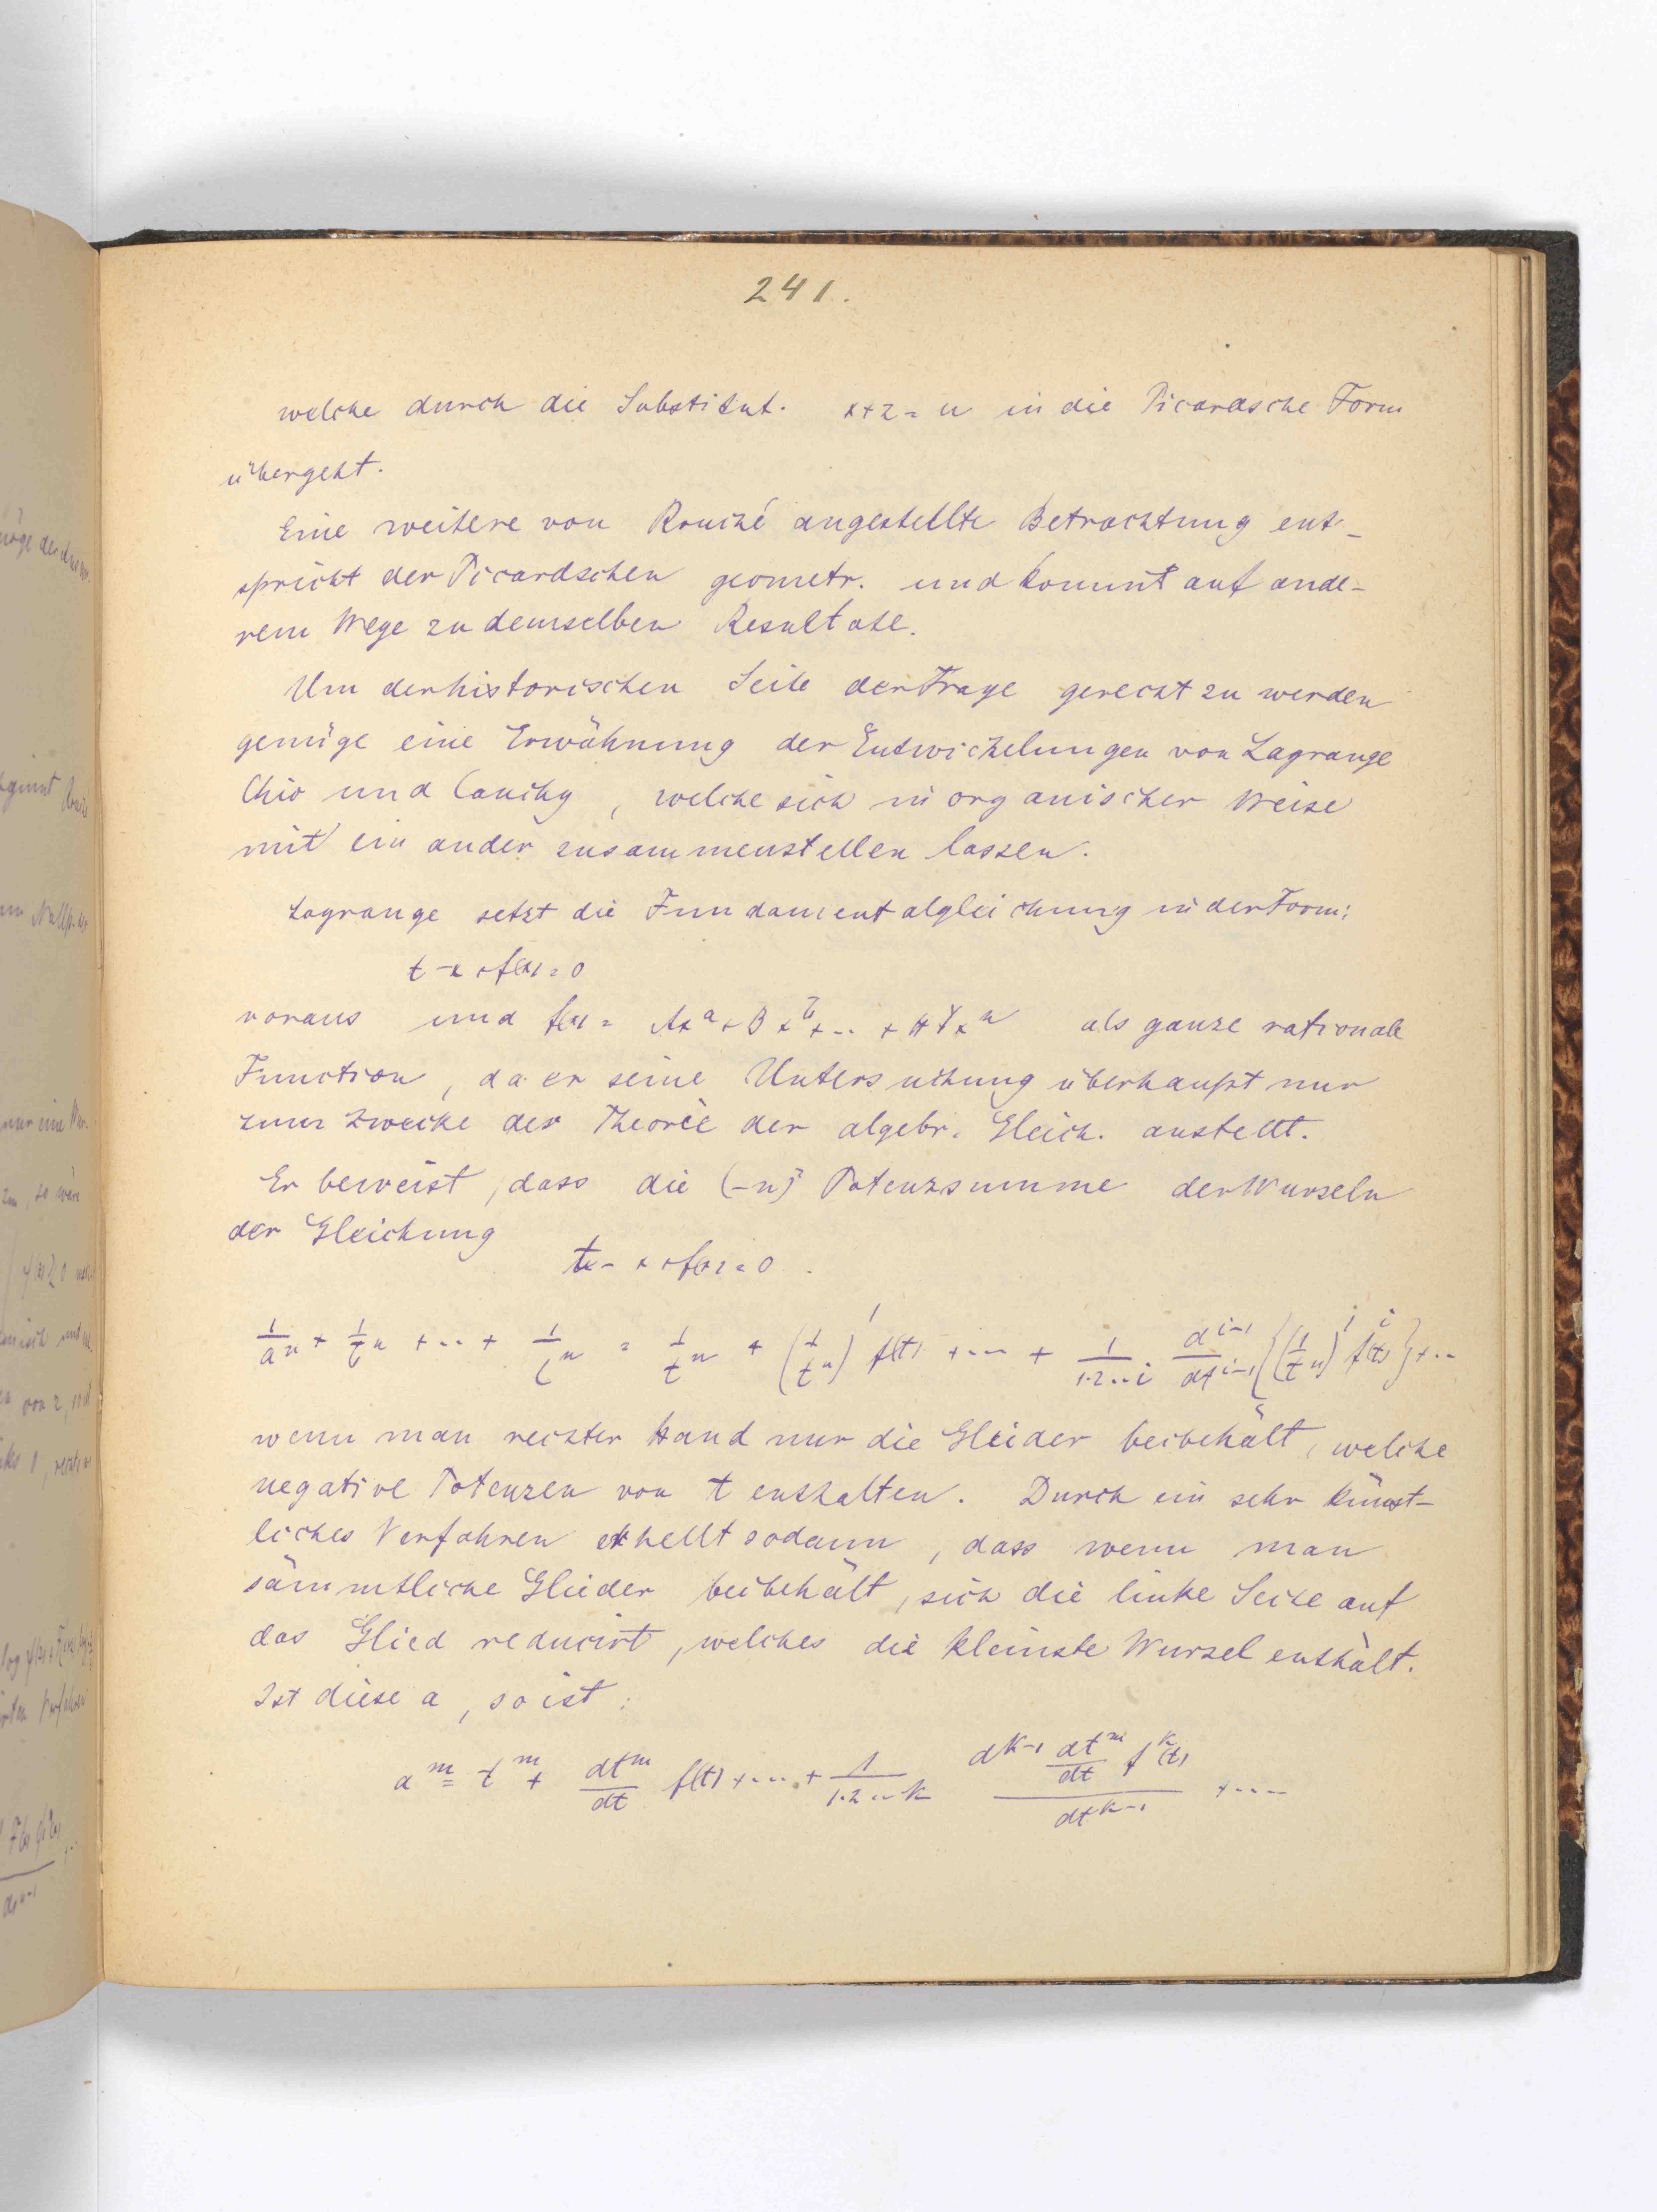 241.
welche durch die Substitut. x+z = u in die Picardsche Form
übergeht.
Eine weitere von Rouché angestellte Betrachtung ent-
spricht der Picardschen geometr. und kommt auf ande-
rem Wege zu demselben Resultate.
Um der historischen Seite der Frage gerecht zu werden
genüge eine Erwähnung der Entwickelungen von Lagrange
Chio und Cauchy, welche sich in organischer Weise
mit einander zusammenstellen lassen.
Lagrange setzt die Fundamentalgleichung in der Form:
t - x + f(x) = 0
voraus und f(x) = Ax^a + Bx^b + .. + x^n als ganze rationale
Function, da er seine Untersuchung überhaupt nur
zum Zwecke der Theorie der algebr. Gleich. anstellt.
Er beweist, dass die (-n)^te Potenzsumme der Wurzeln
der Gleichung
t - x + f(x) = 0.
1/a^n + 1/b^n + ... + 1/l^n = 1/t^n + (1/t^n)' f(t) + ... + 1/1·2...i d^{i-1}/dt^{i-1} {(1/t^n)' f^i(t)} + ..
wenn man rechter Hand nur die Glieder beibehält, welche
negative Potenzen von t enthalten. Durch ein sehr künst-
liches Verfahren erhellt sodann, dass wenn man
sämmtliche Glieder beibehält, sich die linke Seite auf
das Glied reducirt, welches die kleinste Wurzel enthält.
Ist diese a, so ist:
a^m = t^m + dt^m/dt f(t) + ... + 1/1·2...k d^{k-1} dt^m/dt f^k(t) / dt^{k-1} + ....